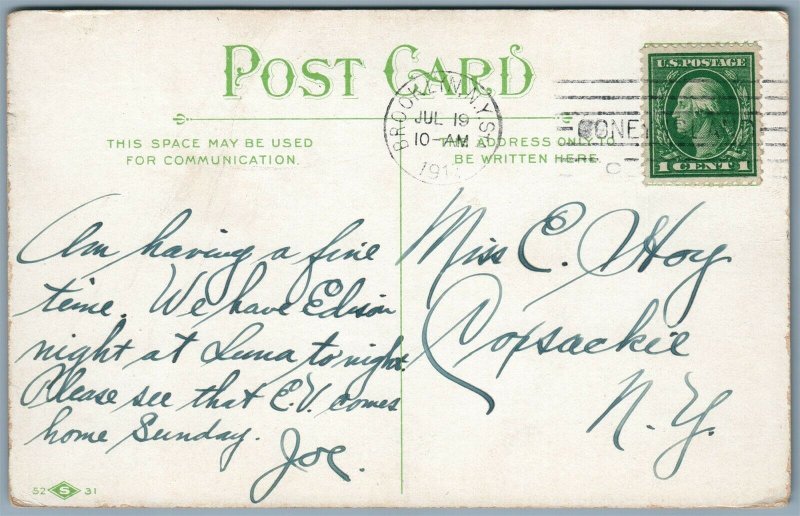 POST CARD
BROOKLYN, N.Y. STA
JUL 19
10-AM
191
CONEY
U.S. POSTAGE
1 CENT 1
THIS SPACE MAY BE USED
FOR COMMUNICATION.
THE ADDRESS ONLY TO
BE WRITTEN HERE.
Am having a fine
time. We have Edison
night at Luna to night.
Please see that E.V. comes
home Sunday.
Joe.
Miss C. Hoy
Coxsackie
N.Y.
52 S 31